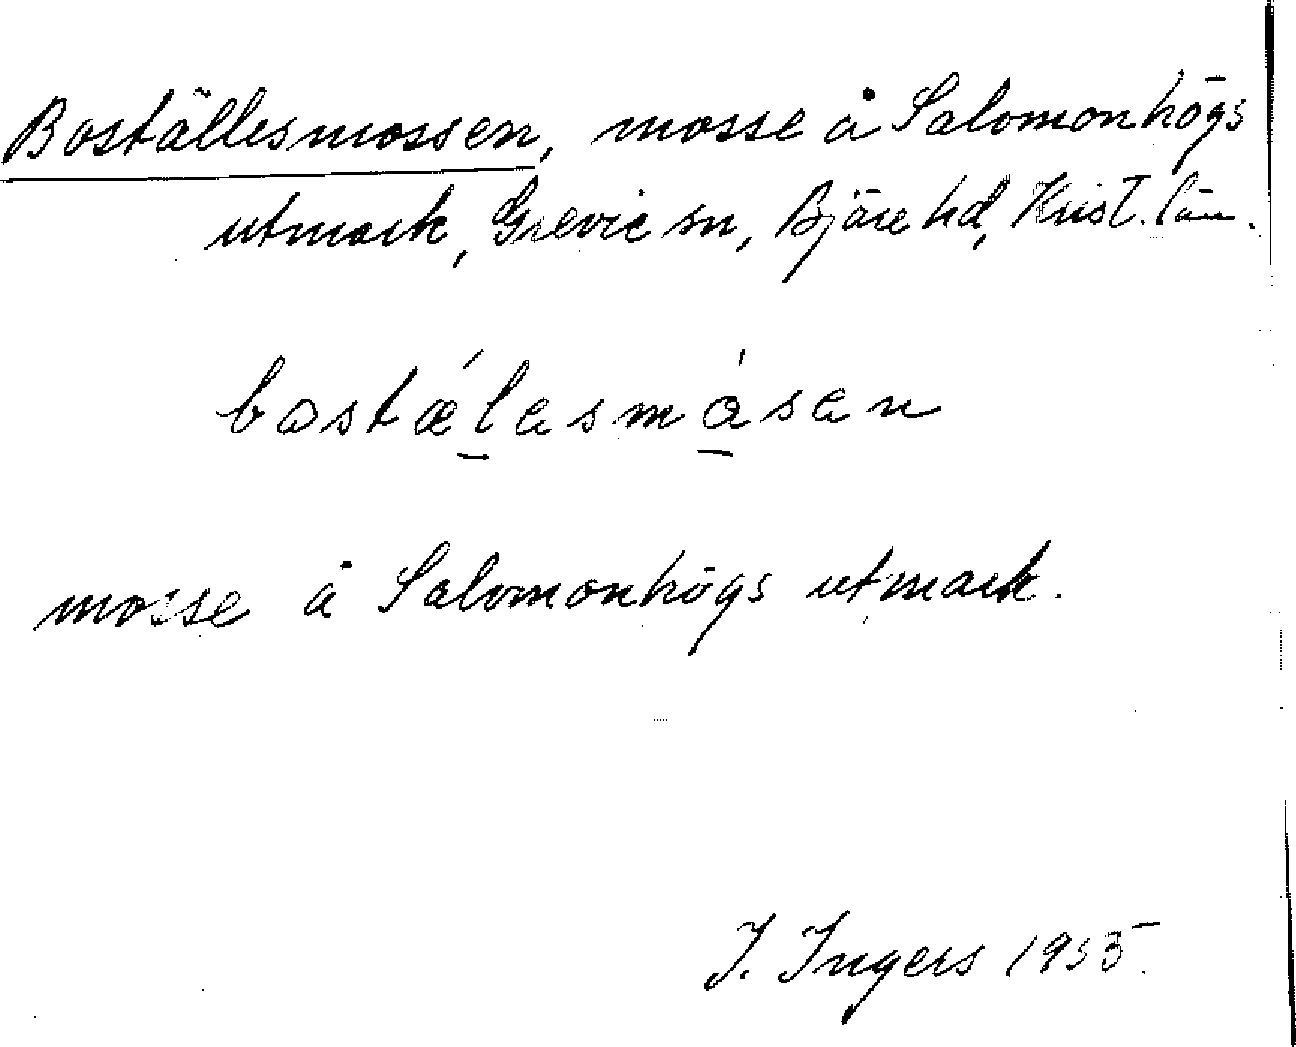 Boställesmossen, mosse å Salomonhögs
utmark, Grevie sn, Bjäre hd, Krist. län.
bostǽlesmåsen
mosse å Salomonhögs utmark.
I. Ingers 1935.